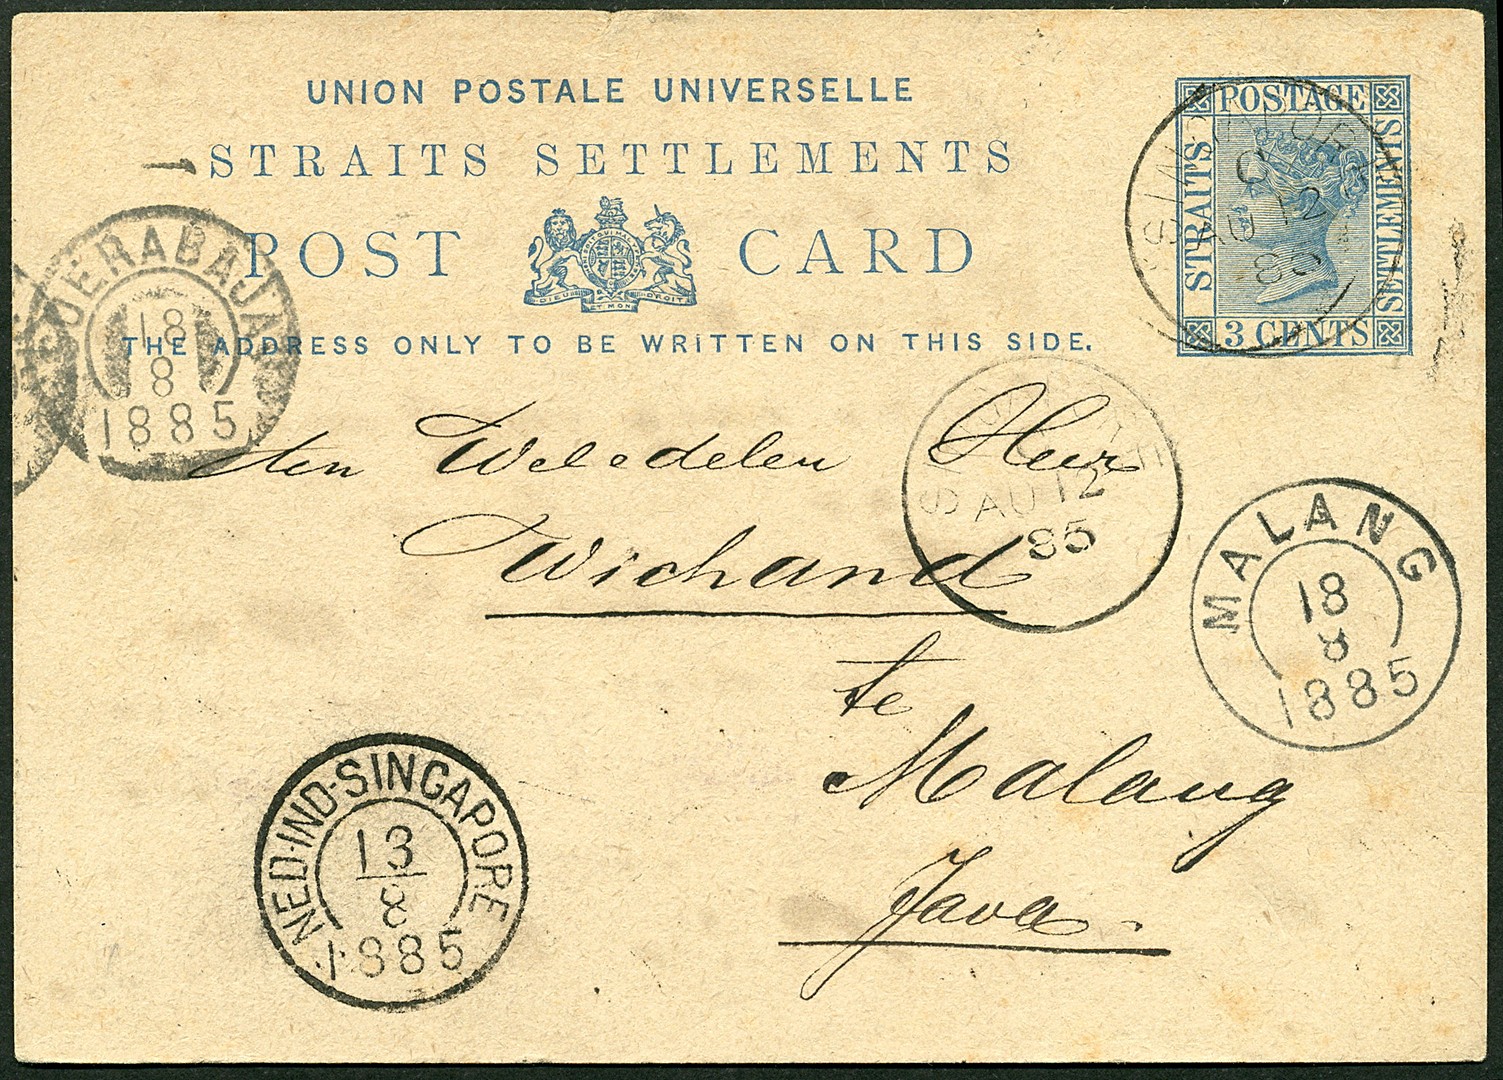 UNION POSTALE UNIVERSELLE
STRAITS SETTLEMENTS
POST CARD
DIEU ET MON DROIT
THE ADDRESS ONLY TO BE WRITTEN ON THIS SIDE.
POSTAGE
STRAITS
SETTLEMENTS
3 CENTS
SINGAPORE
C
AU 12
85
SOERABAJA
18
8
1885
den Weledelen Heer
Wichand
te
Malang
Java.
SINGAPORE
AU 12
85
MALANG
18
8
1885
NED-IND-SINGAPORE
13
8
1885